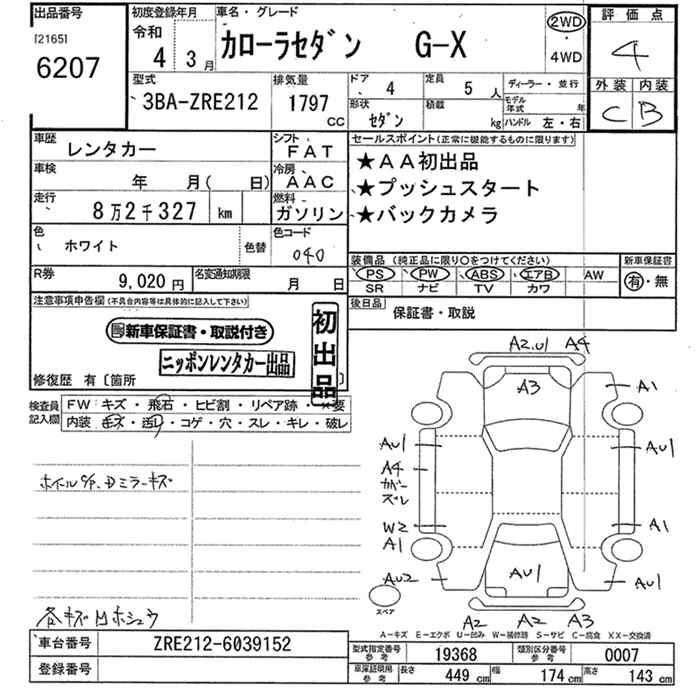 出品番号
[2165]
6207
初度登録年月
令和
4 3月
車名・グレード
カローラセダン G-X
2WD
・
4WD
評価点
4
外装 内装
C B
型式
3BA-ZRE212
排気量
1797
CC
ドア
4
定員
5 人
形状
セダン
積載
kg
ディーラー・並行
モデル年式
年
ハンドル 左・右
車歴
レンタカー
シフト
FAT
車検
年 月( 日)
冷房
AAC
走行
8万2千327 km
燃料
ガソリン
色
ホワイト
色替
色コード
040
セールスポイント(正常に機能するものに限ります)
★AA初出品
★プッシュスタート
★バックカメラ
R券
9,020円
名変通知期限
月 日
装備品(純正品に限り〇をつけてください)
PS PW ABS エアB AW
SR ナビ TV カワ
新車保証書
有・無
注意事項申告欄(不具合内容等は具体的に記入して下さい)
新車保証書・取説付き
ニッポンレンタカー出品
初出品
修復歴 有〔箇所
後日品
保証書・取説
検査員記入欄
FW キズ・飛石・ヒビ割・リペア跡・×要
内装 キズ・汚リ・コゲ・穴・スレ・キレ・破レ
A2.U1 A4
A3
A1
AU1
AU1
A4
カバー
ズレ
W2
A1
A1
AU2
AU1
AU1
スペア
A2 A2 A3
A-キズ E-エクボ U-凹み W-補修跡 S-サビ C-腐食 XX-交換済
車台番号
ZRE212-6039152
登録番号
型式指定番号
参考
19368
類別区分番号
参考
0007
車庫証明用
参考
長さ
449 cm
幅
174 cm
高さ
143 cm